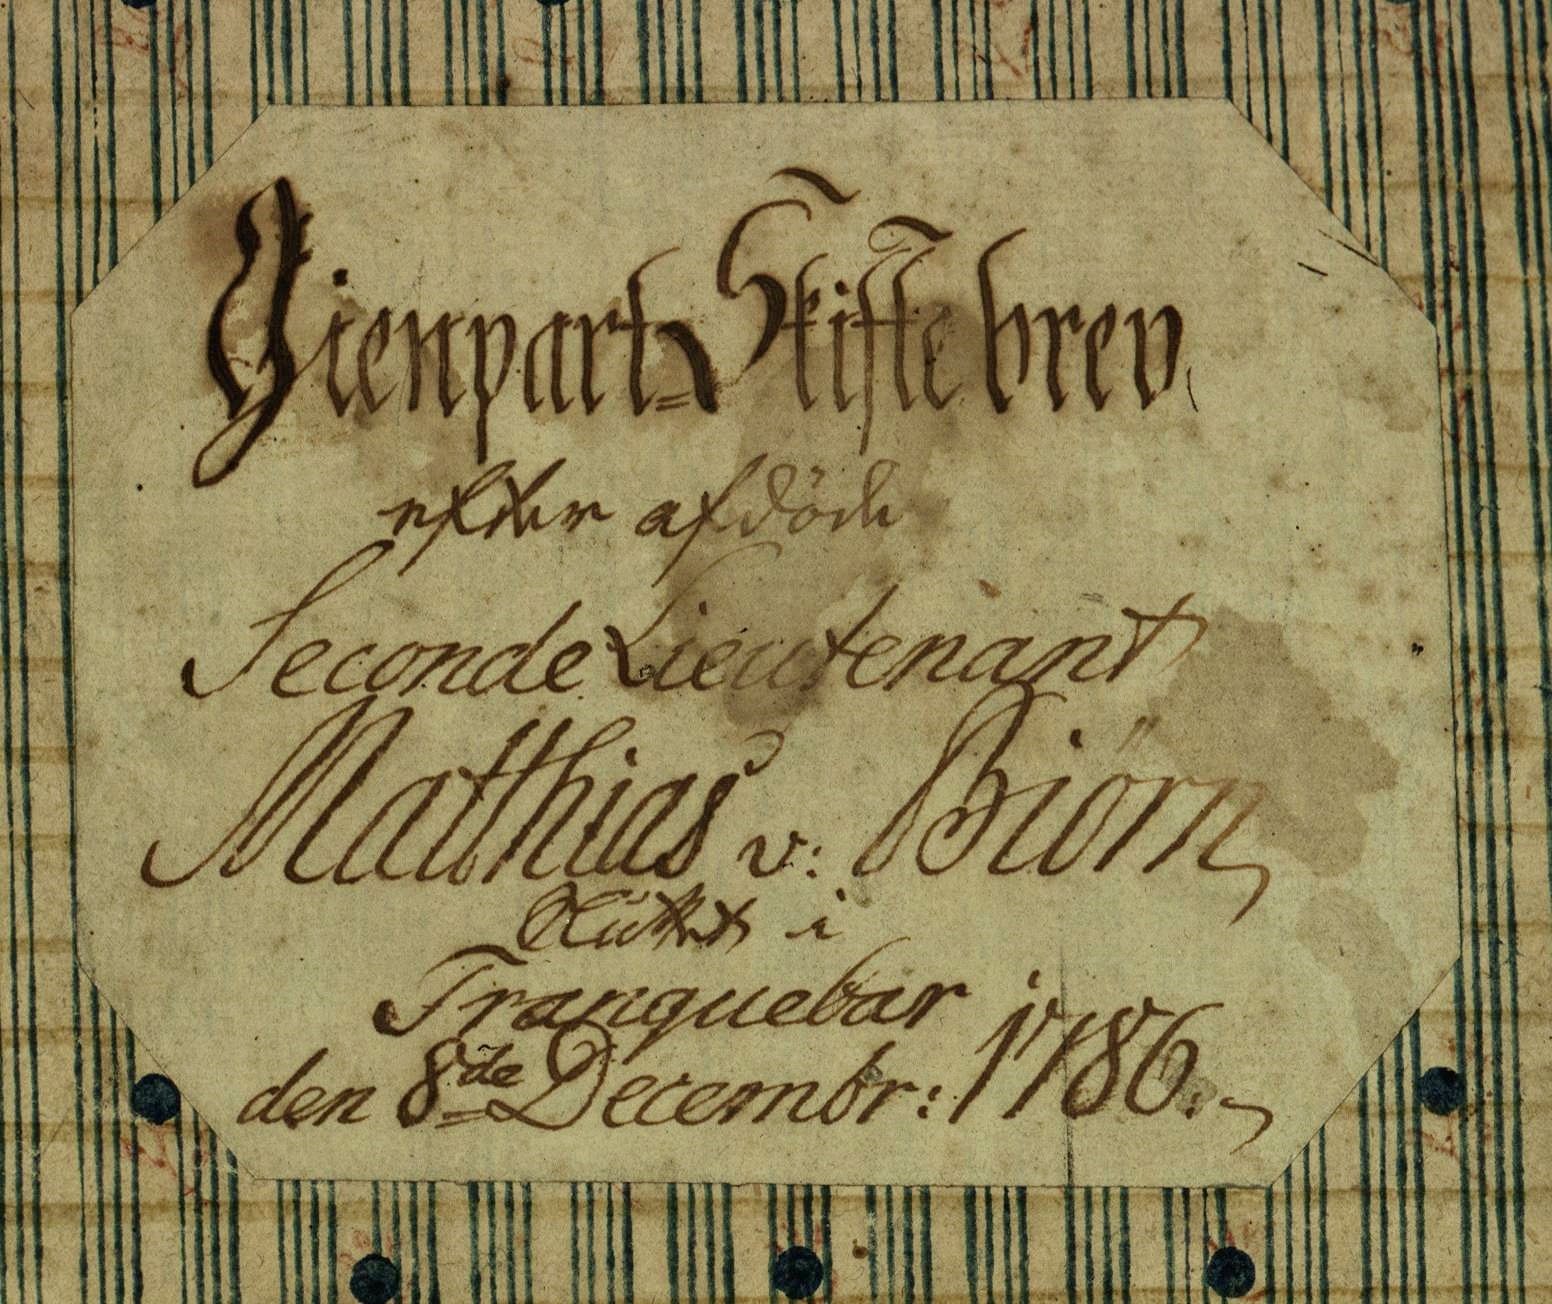 Gienpart=Skiftebrev
efter afdöde
Seconde Lieutenant
Matthias v: Biørn
Sluttet i
Tranquebar
den 8de Decembr: 1786.